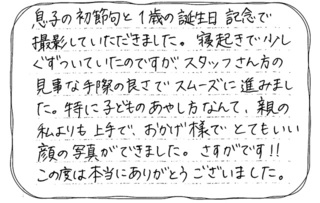 息子の初節句と1歳の誕生日記念で
撮影していただきました。寝起きで少し
ぐずついていたのですがスタッフさん方の
見事な手際の良さでスムーズに進みまし
た。特に子どものあやし方なんて、親の
私よりも上手で、おかげ様でとてもいい
顔の写真ができました。さすがです!!
この度は本当にありがとうございました。